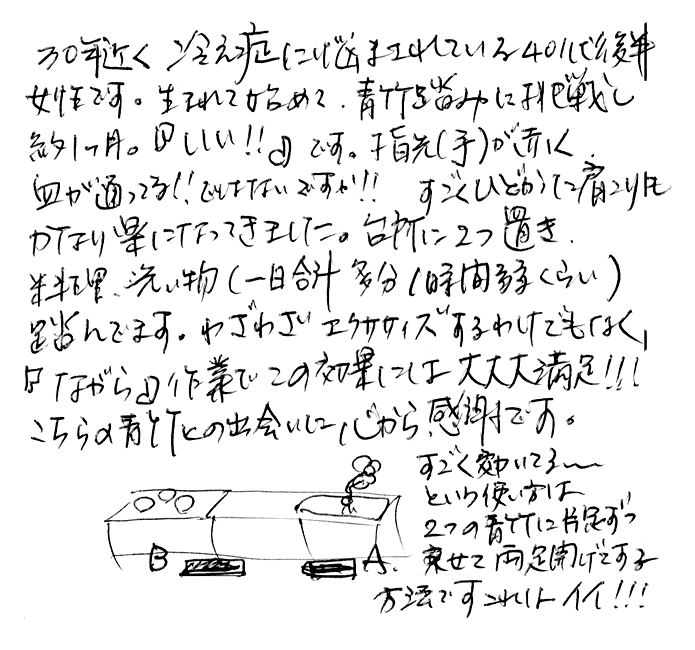 30年近く冷え症に悩まされている40代後半
女性です。生まれて始めて、青竹踏みに挑戦し
約1ヶ月。『しいい!!』です。指先(手)が赤く
血が通ってる!!ではないですか!!すごくひどかった肩こりも
かなり楽になってきました。台所に2つ置き、
料理、洗い物(一日合計多分1時間多くらい)
踏んでます。わざわざエクササイズするわけでもなく、
『ながら』作業でこの効果には大大大満足!!!
こちらの青竹との出会いに心から感謝です。
すごく効いてる〜
という使い方は
2つの青竹に片足ずつ
乗せて両足開げてする
方法ですこれはイイ!!!
B A.